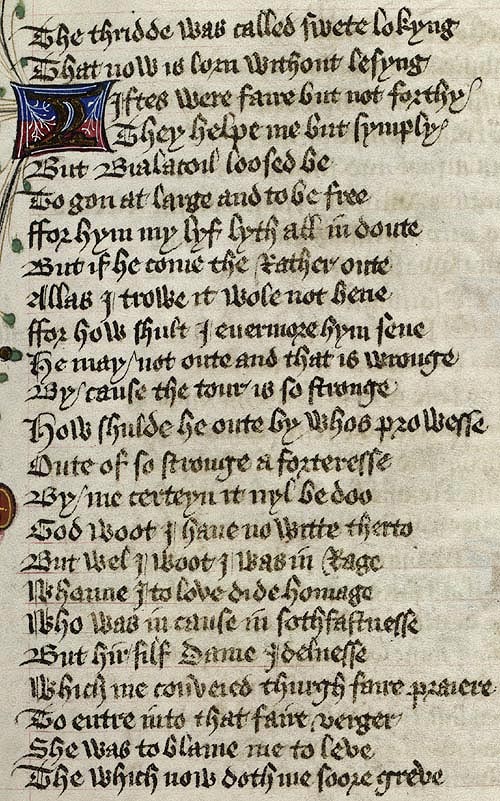 The thridde was called swete lokyng
That now is lorn without lesyng
Yiftes were faire but not forthy
They helpe me but symply
But Bialacoil loosed be
To gon at large and to be free
ffor hym my lyf lyth all in doute
But if he come the Rather oute
Allas I trowe it wole not bene
ffor how shult I euermore hym sene
He may not oute and that is wronge
By cause the tour is so stronge
How shulde he oute by whos prowesse
Oute of so stronge a forteresse
By me certeyn it nyl be doo
God woot I haue no witte therto
But wel I woot I was in Rage
Whanne I to love dide homage
Who was in cause in sothfastnesse
But hir silf Dame Idelnesse
Which me conveied thurgh faire praiere
To entre into that faire verger
She was to blame me to leve
The which now doth me soore greve